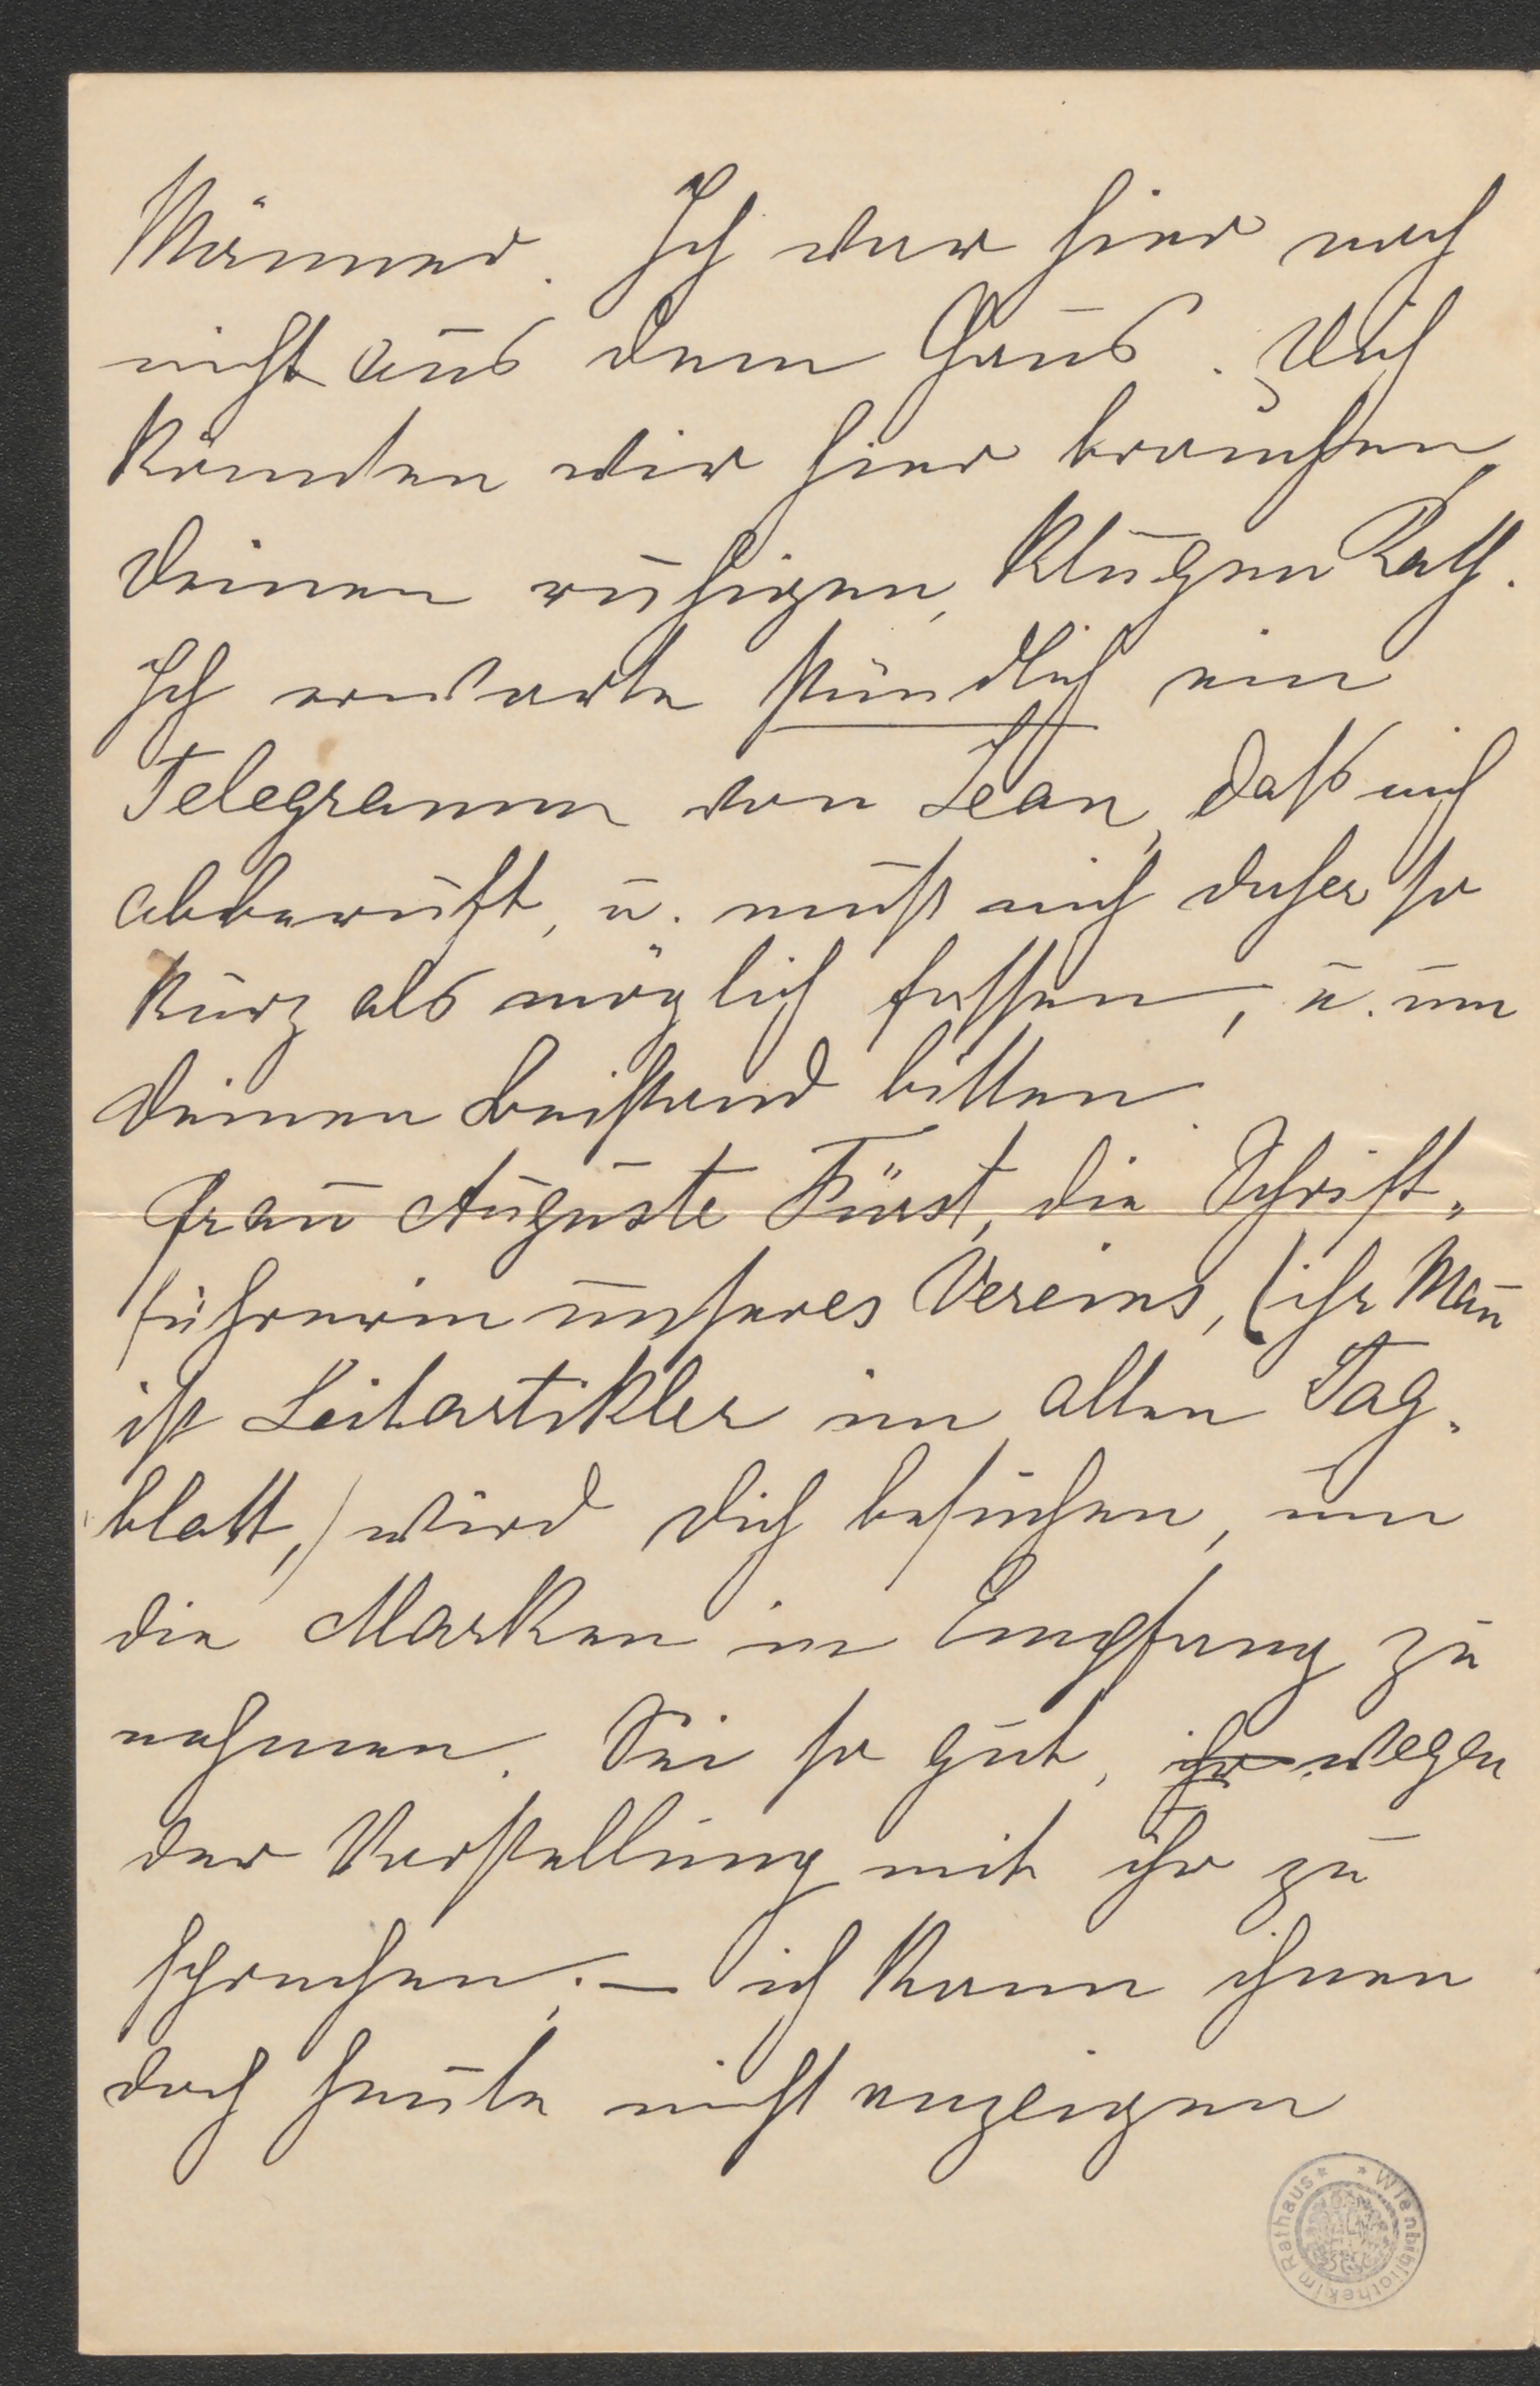 Männer. Ich war hier noch
nicht aus dem Haus. Dich
könnten wir hier brauchen,
Deinen ruhigen, klugen Rath.
Ich erwarte stündlich ein
Telegramm von Jean, daß mich
abberuft, u. muß mich daher so
kurz als möglich fassen, u. um
Deinen Beistand bitten.
Frau Auguste Fürst, die Schrift„
führerin unseres Vereins, (ihr Mañ
ist Leitartikler im alten Tag„
blatt,) wird Dich besuchen, um
die Marken in Empfang zu
nehmen. Sei so gut, ihr wegen
der Vorstellung mit ihr zu
sprechen; – ich kann ihnen
doch heute nicht anzeigen
Wienbibliothek im Rathaus